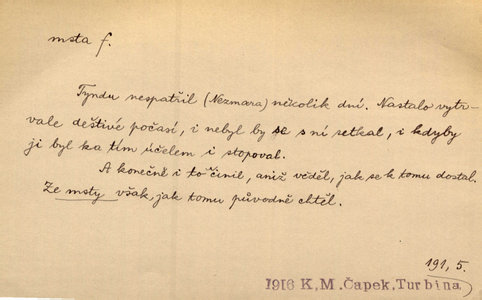 msta f.
Tyndu nespatřil (Nezmara) několik dní. Nastalo vytr-
vale deštivé počasí, i nebyl by se s ní setkal, i kdyby
ji byl ka tím účelem i stopoval.
A konečně i to činil, aniž věděl, jak se k tomu dostal.
Ze msty však, jak tomu původně chtěl.
191, 5.
1916 K. M. Čapek, Turbina